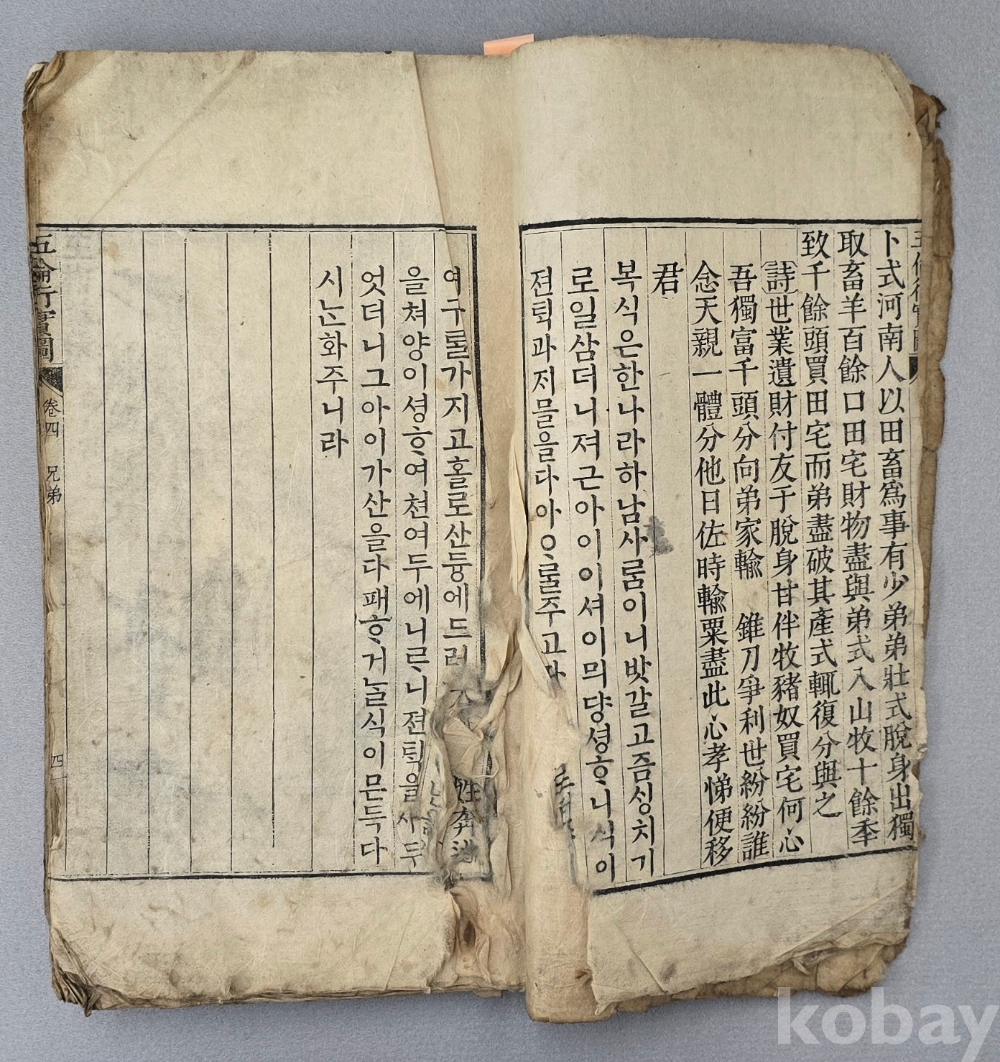 卜式河南人以田畜爲事有少弟弟壯式脫身出獨
取畜羊百餘口田宅財物盡與弟式入山牧十餘秊
致千餘頭買田宅而弟盡破其產式輒復分與之
詩世業遺財付友于脫身甘伴牧豬奴買宅何心
吾獨富千頭分向弟家輸 錐刀爭利世紛紛誰
念天親一體分他日佐時輸粟盡此心孝悌便移
君
복식은한나라하남사ᄅᆞᆷ이니밧갈고즘ᄉᆡᆼ치기
로일삼더니져근아이이셔이믜댱셩ᄒᆞ니식이
뎐ᄐᆡᆨ과ᄌᆡ믈을다아ᄋᆞᄅᆞᆯ주고다
여구ᄅᆞᆯ가지고홀로산듕에드러
을쳐양이셩ᄒᆞ여쳔여두에니ᄅᆞ니뎐ᄐᆡᆨ을사두
엇더니그아이가산을다패ᄒᆞ거ᄂᆞᆯ식이믄득다
시ᄂᆞᆫ화주니라
五倫行實圖 卷四 兄弟 四
kobay